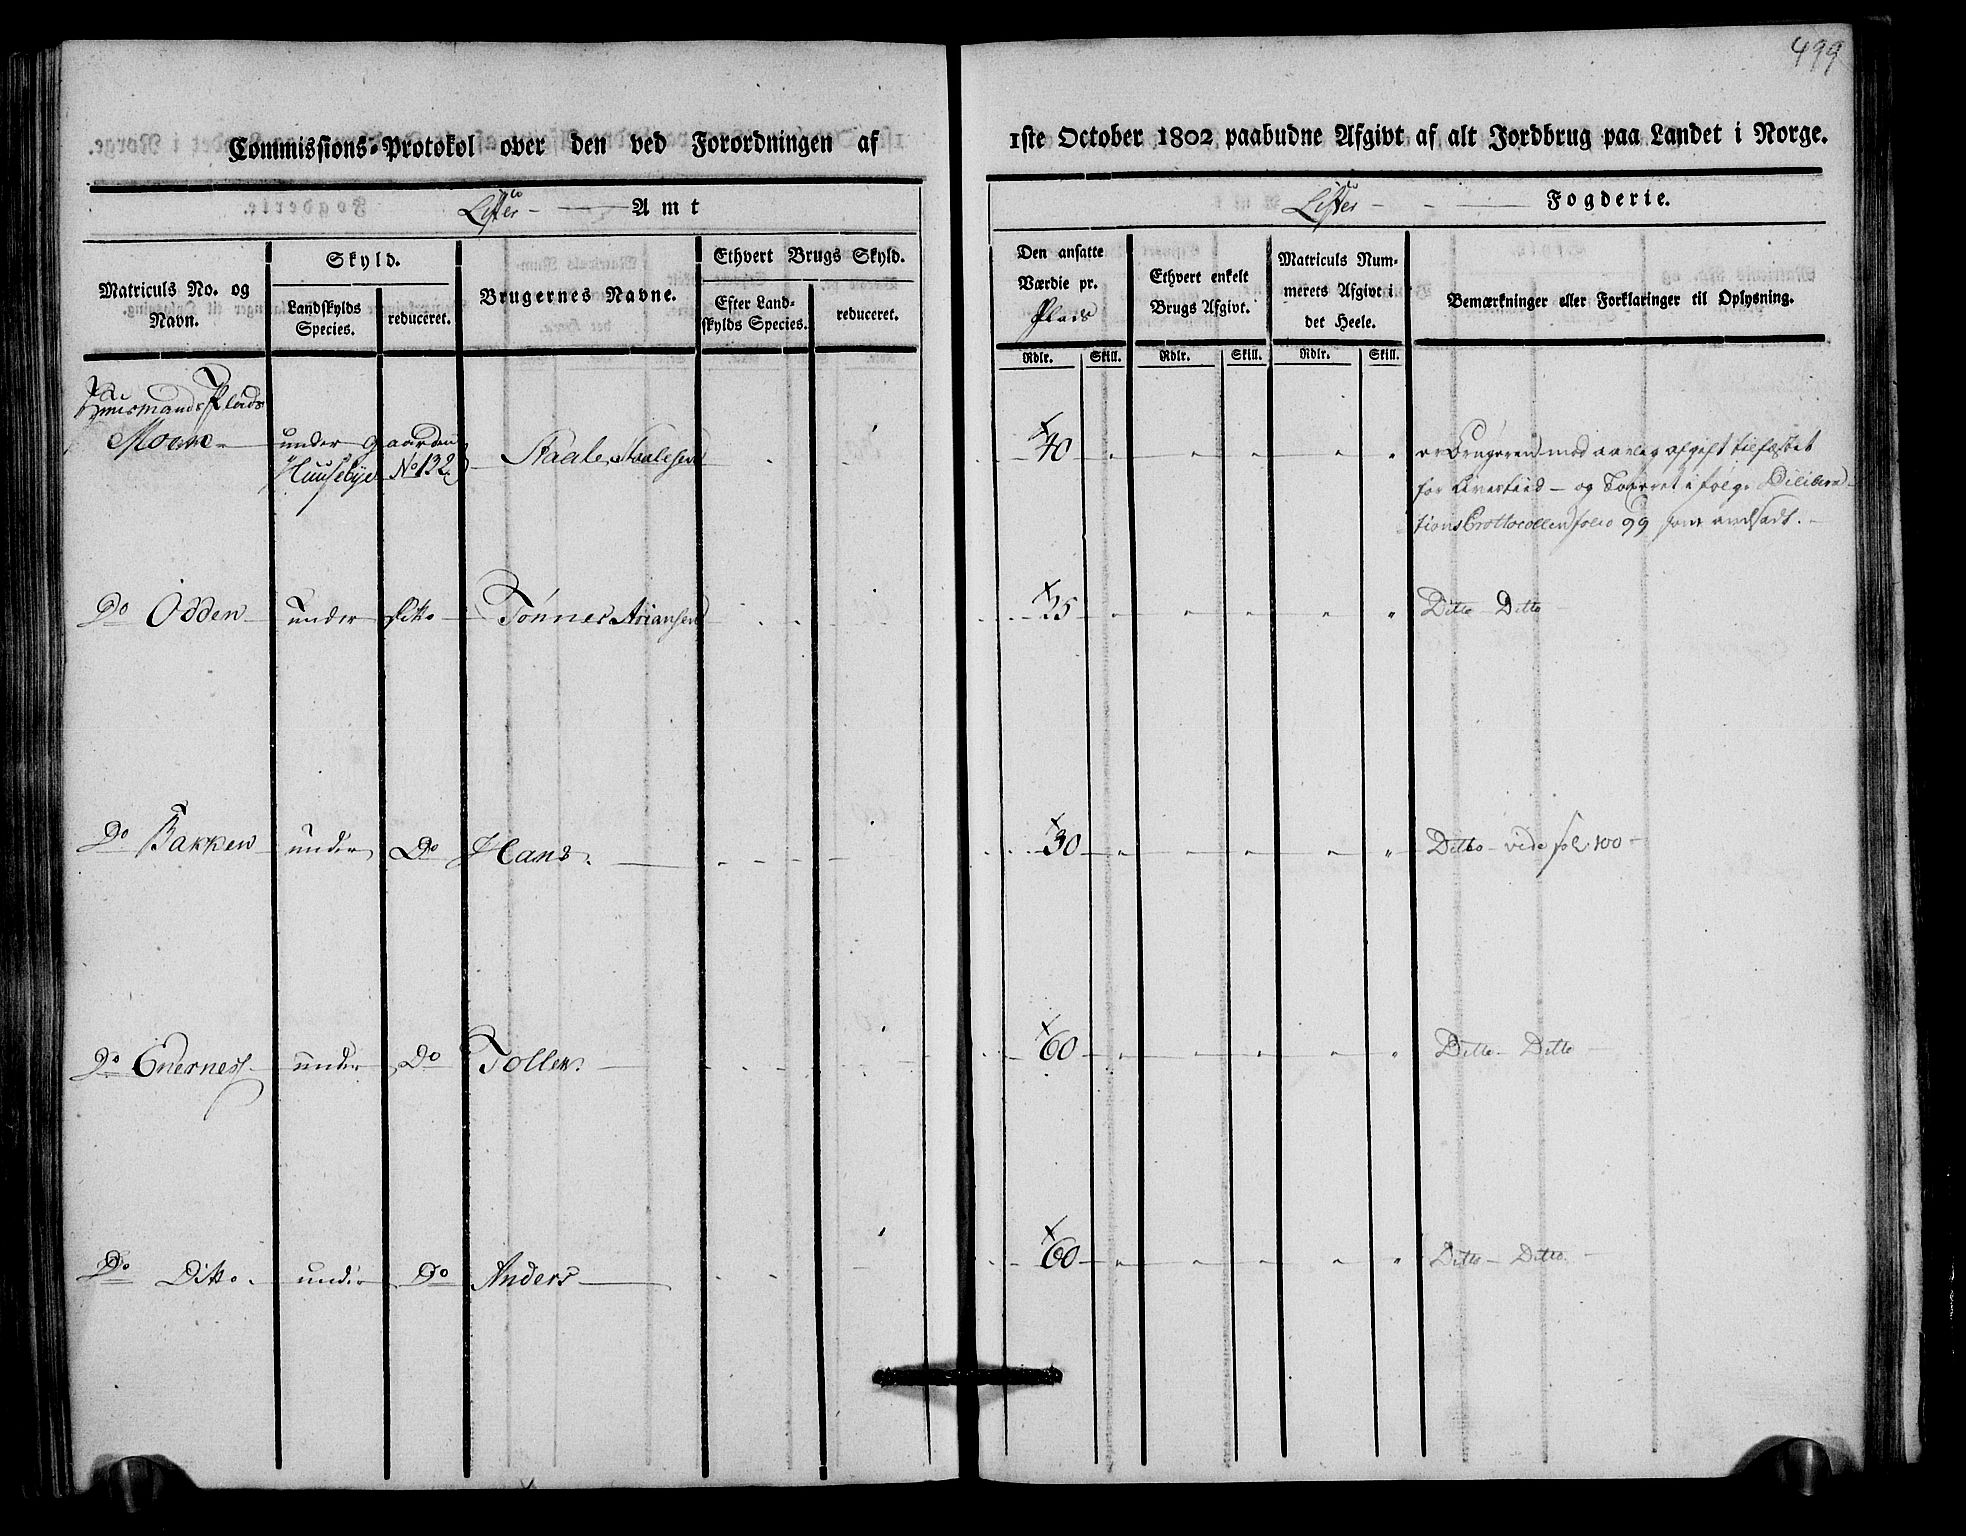 499
Commissions-Protokol over den ved Forordningen af 1ste October 1802 paabudne Afgivt af alt Jordbrug paa Landet i Norge.
Lister Amt
Lister Fogderie.
Matriculs No. og Navn.
Skyld.
Landskylds Species.
reduceret.
Brugernes Navne.
Ethvert Brugs Skyld.
Efter Landskylds Species.
reduceret.
Den ansatte Værdie pr. Plads
Rdlr. Skill.
Ethvert enkelt Brugs Afgivt.
Rdlr. Skill.
Matriculs Nummerets Afgivt i det Heele.
Rdlr. Skill.
Bemærkninger eller Forklaringer til Oplysning.
Huusmands Plads
Moene - under gaarden Huusebye No 132 - Staale Staalesen - 40 " " " " " er Brugeren mod aarlig afgift tilfæstet
for Livstiid - og Taxeret i følge Delibera-
tions Prottocollen folio 99 som andsadt.
Do Odden - under Ditto - Tønnes Asiansen - 25 " " " " " Ditto Ditto
Do Bakken - under Do Hans. - 30 " " " " " Ditto - vide fol 100 -
Do Enernes - under Do Tollev. - 60 " " " " " Ditto - Ditto -
Do Ditto. - under Do Anders - 60 " " " " " Ditto - Ditto. -